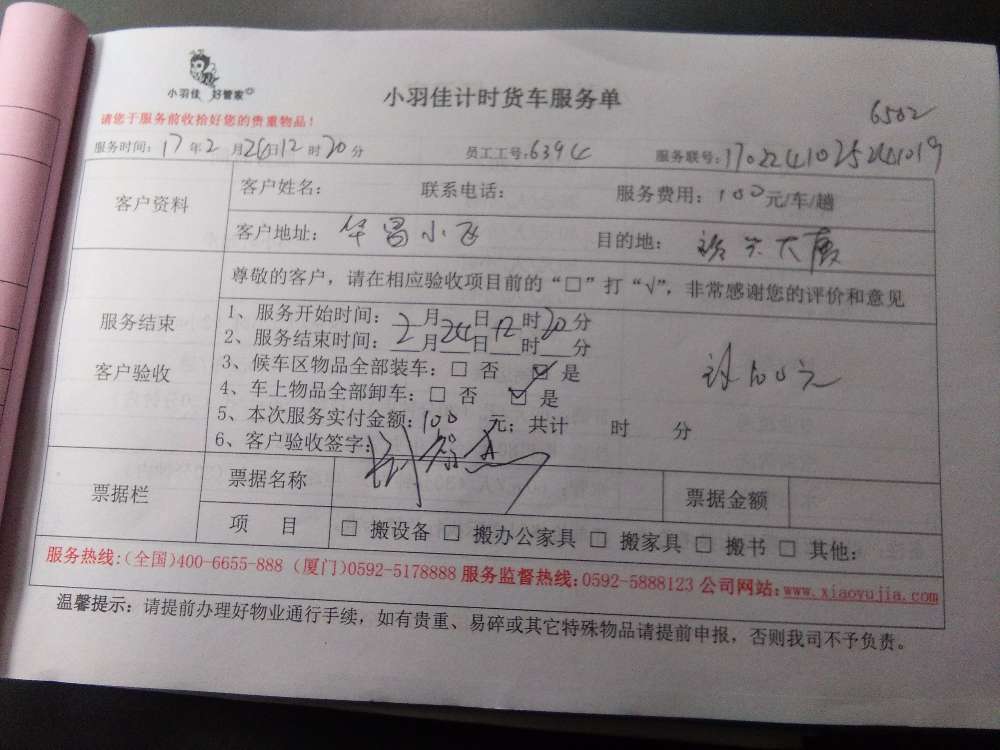 小羽佳 好管家
小羽佳计时货车服务单
6502
请您于服务前收拾好您的贵重物品！
服务时间：17年2月24日12时20分 员工工号：6394 服务联号：
客户资料
客户姓名： 联系电话： 服务费用：100元/车/趟
客户地址：华昌小 目的地：大厦
尊敬的客户，请在相应验收项目前的“□”打“√”，非常感谢您的评价和意见
服务结束
客户验收
1、服务开始时间：2月24日12时20分
2、服务结束时间：2月24日__时__分
3、候车区物品全部装车：□ 否 ☑ 是
4、车上物品全部卸车：□ 否 ☑ 是
100元
5、本次服务实付金额：100 元；共计 时 分
6、客户验收签字：
票据栏
票据名称 票据金额
项 目 □ 搬设备 □ 搬办公家具 □ 搬家具 □ 搬书 □ 其他：
服务热线：（全国）400-6655-888（厦门）0592-5178888 服务监督热线：0592-5888123 公司网站：www.xiaoyujia.com
温馨提示：请提前办理好物业通行手续，如有贵重、易碎或其它特殊物品请提前申报，否则我司不予负责。